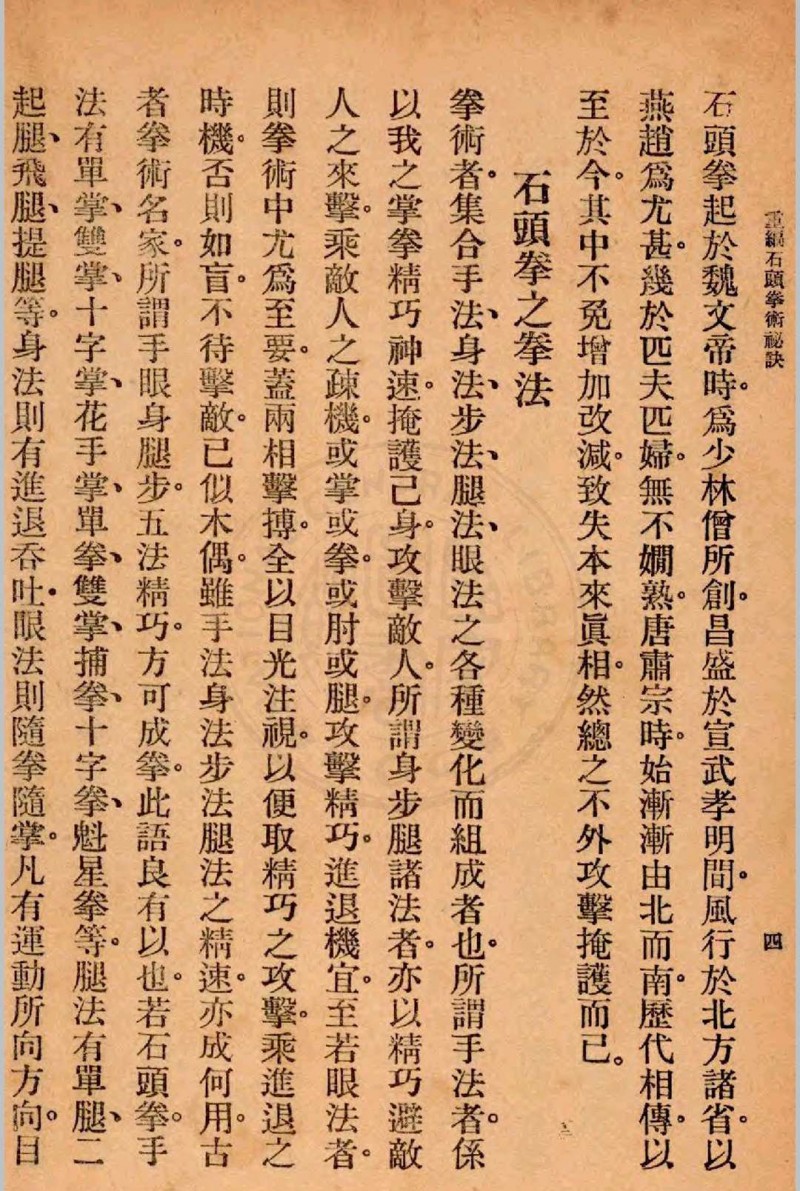 重編石頭拳術秘訣
四
石頭拳起於魏文帝時。爲少林僧所創。昌盛於宣武孝明間。風行於北方諸省。以
燕趙爲尤甚。幾於匹夫匹婦。無不嫺熟。唐肅宗時。始漸漸由北而南。歷代相傳。以
至於今。其中不免增加改減。致失本來眞相。然總之不外攻擊掩護而已。
石頭拳之拳法
拳術者。集合手法、身法、步法、腿法、眼法之各種變化而組成者也。所謂手法者。係
以我之掌拳精巧神速。掩護己身。攻擊敵人。所謂身步腿諸法者。亦以精巧避敵
人之來擊。乘敵人之疎機。或掌或拳。或肘或腿。攻擊精巧。進退機宜。至若眼法者。
則拳術中尤爲至要。蓋兩相擊搏。全以目光注視。以便取精巧之攻擊。乘進退之
時機。否則如盲。不待擊敵。已似木偶。雖手法身法步法腿法之精速。亦成何用。古
者拳術名家。所謂手眼身腿步。五法精巧。方可成拳。此語良有以也。若石頭拳。手
法有單掌、雙掌、十字掌、花手掌、單拳、雙掌、捕拳、十字拳、魁星拳等。腿法有單腿、二
起腿、飛腿、提腿等。身法則有進退吞吐。眼法則隨拳隨掌。凡有運動所向方向。目